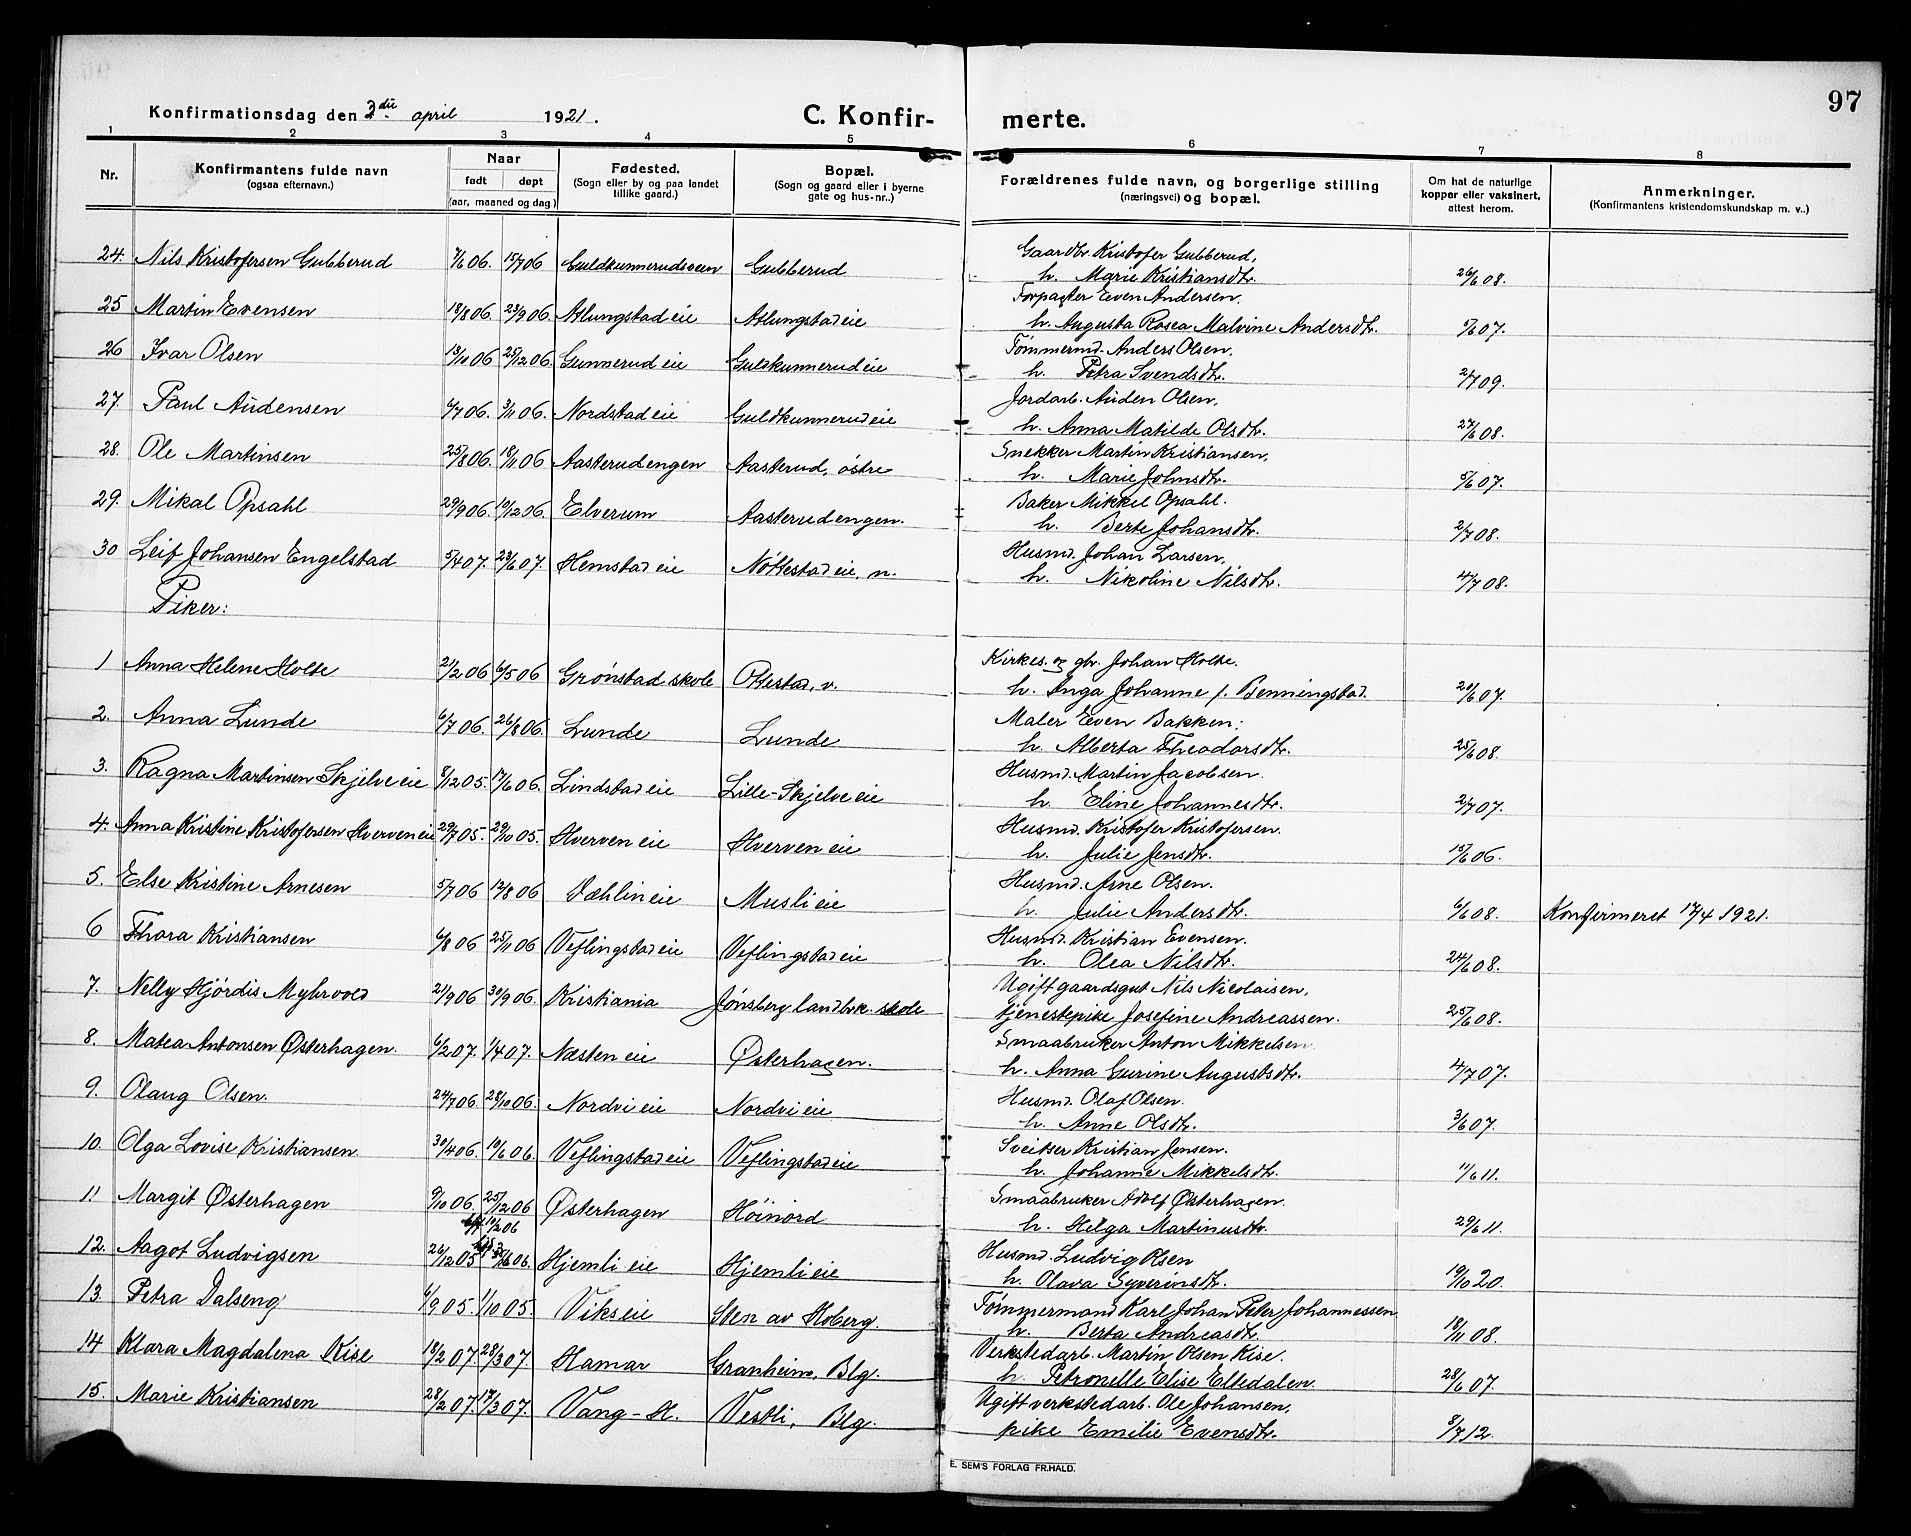 97
Konfirmationsdag den 3die april 1921.
C. Konfirmerte.
1 2 3 4 5 6 7 8
Nr.
Konfirmantens fulde navn
(ogsaa efternavn.)
Naar
født døpt
(aar, maaned og dag)
Fødested.
(Sogn eller by og paa landet
tillike gaard.)
Bopæl.
(Sogn og gaard eller i byerne
gate og hus-nr.)
Forældrenes fulde navn, og borgerlige stilling
(næringsvei) og bopæl.
Om hat de naturlige
kopper eller vaksinert,
attest herom.
Anmerkninger.
(Konfirmantens kristendomskundskap m. v..)
24. Nils Kristofersen Gubberud 7/6 06. 15/7 06 Guldkunnerudsveen Gubberud Gaardbr. Kristofer Gubberud,
h. Marie Kristiansdtr. 26/6 08.
25 Martin Evensen 18/8 06. 23/9 06. Atlungstad eie Atlungstad eie Forpagter Even Andersen.
h. Augusta Rosea Malvine Andersdtr. 5/6 07.
26 Ivar Olsen 13/10 06 25/12 06. Gunnerud eie Guldkunnerud eie Tømmermd. Anders Olsen.
h. Petra Svendsdtr. 2/7 09.
27. Paul Audensen 6/7 06. 3/11 06. Nordstad eie Guldkunnerud eie Jordarb. Auden Olsen,
h. Anna Matilde Olsdtr. 27/6 08.
28. Ole Martinsen 25/8 06. 18/11 06 Aasterudengen Aasterud, østre Snekker Martin Kristiansen,
h. Marie Johnsdtr. 5/6 07.
29. Mikal Opsahl 29/9 06. 19/12 06. Elverum Aasterudengen. Baker Mikkel Opsahl.
h. Berte Johansdtr. 2/7 08.
30 Leif Johansen Engelstad 5/4 07. 23/6 07. Hemstad eie Nøttestad eie, n. Husmd. Johan Larsen,
h. Nikoline Nilsdtr. 4/7 08.
Piker:
1 Anna Helene Holte 21/2 06 6/5 06 Grønstad skole Ottestad, v. Kirkes. og gbr. Johan Holte.
h. Inga Johanne f. Benningstad. 20/6 07.
2. Anna Lunde 6/7 06. 26/8 06. Lunde Lunde Maler Even Bakken:
h. Alberta Theodorsdtr. 25/6 08.
3. Ragna Martinsen Skjelve eie 8/12 05. 17/6 06. Lindstad eie Lille-Skjelve eie Husmd. Martin Jacobsen.
h. Eline Johannesdtr. 2/7 07.
4. Anna Kristine Kristofersen Hverven eie 29/7 05. 29/10 05. Hverven eie Hverven eie Husmd. Kristofer Kristofersen.
h. Julie Jensdtr. 15/6 06.
5. Else Kristine Arnesen 5/7 06 12/8 06 Dæhlin eie Musli eie Husmd. Arne Olsen.
h. Julie Andersdtr. 6/6 08. Konfirmeret 17/4 1921.
6 Thora Kristiansen 6/8 06 25/11 06 Veflingstad eie Veflingstad eie Husmd. Kristian Evensen.
h. Olea Nilsdtr. 24/6 08.
7. Nelly Hjördis Myhrvold 21/9 06 30/9 06. Kristiania Jønsberg landbrk. skole Ugift gaardsgut Nils Nicolaisen,
tjenestepike Josefine Andreassen. 25/6 08.
8. Matea Antonsen Østerhagen. 6/2 07. 1/4 07. Næsten eie Østerhagen. Smaabruker Anton Mikkelsen
h. Anna Gurine Augustsdtr. 4/7 07.
9. Olaug Olsen. 24/7 06. 28/10 06. Nordvi eie Nordvi eie Husmd. Olaf Olsen.
h. Anne Olsdtr. 3/6 07.
10. Olga Lovise Kristiansen 30/4 06. 10/6 06. Veflingstad eie Veflingstad eie Sveitser Kristian Jensen.
h. Johanne Mikkelsdtr. 11/6 11.
11 Margit Østerhagen 9/10 06. 25/12 06 Østerhagen Höinord Smaabruker Adolf Østerhagen.
h. Helga Martinusdtr. 29/6 11.
12. Aagot Ludvigsen 26/12 05 Hjemli eie Hjemli eie Husmd. Ludvig Olsen
h. Olava Syverinsdtr. 19/10 20.
13. Petra Dalseng 6/9 05. 1/10 05. Viks eie Sten av Hoberg. Tømmermand Karl Johan Peter Johannessen
h. Berta Andreasdtr. 18/11 08.
14 Klara Magdalena Kise 18/2 07. 28/3 07. Hamar Granheim, Blg. Verkstedarb. Martin Olsen Kise.
h. Petronelle Elise Elledalen. 28/6 07.
15. Marie Kristiansen 28/2 07. 17/3 07. Vang-H. Vestli, Blg. Ugift verkstedarb. Ole Johansen,
pike Emilie Evensdtr. 8/7 12.
E. SEM'S FORLAG FR.HALD.